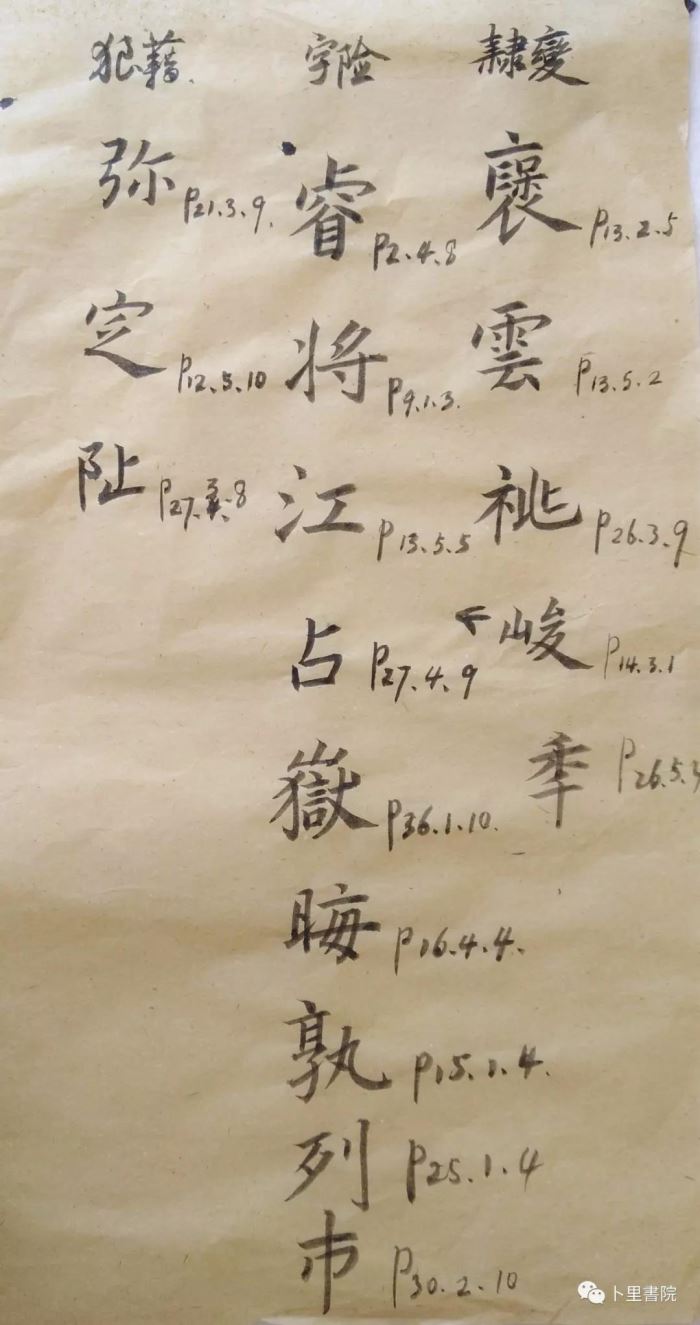 隷變
褒 P13.2.5
雲 P13.5.2
祉 P26.3.9
峻 P14.3.1
季 P26.5.3
字险
睿 P2.4.8
将 P9.1.3.
江 P13.5.5
占 P27.4.9
嶽 P36.1.10.
晦 P16.4.4.
孰 P15.1.4.
列 P25.1.4
市 P30.2.10
狼藉.
弥 P21.3.9.
定 P12.5.10
阯 P27.3.8
卜里書院